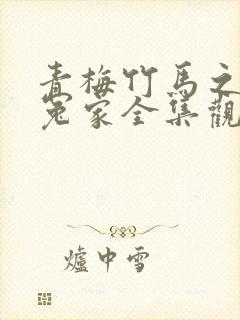 青梅竹馬之
冤家全集觀
爐中雪